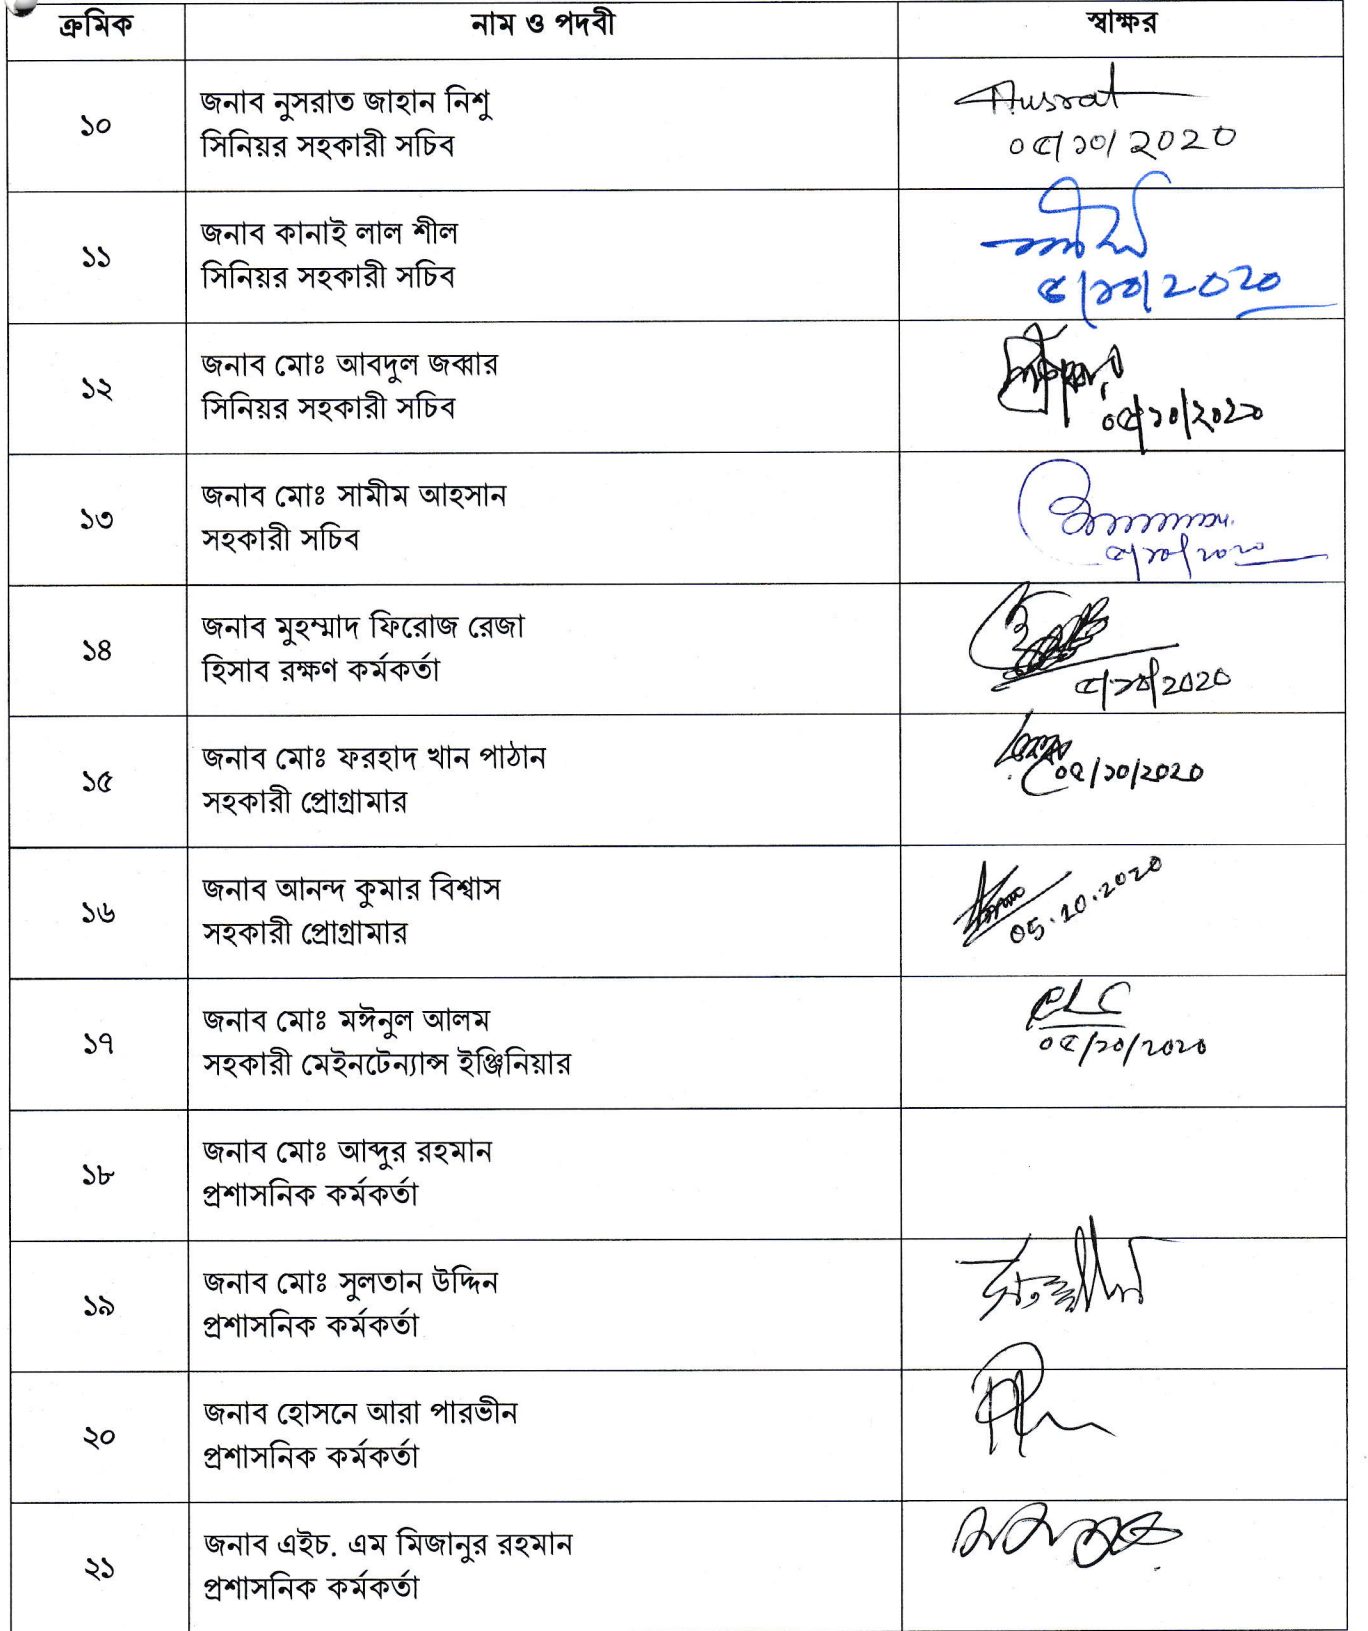 ক্রমিক নাম ও পদবী স্বাক্ষর
১০ জনাব নুসরাত জাহান নিশু
সিনিয়র সহকারী সচিব
Nusrat
০৫/১০/2020
১১ জনাব কানাই লাল শীল
সিনিয়র সহকারী সচিব
৫/১০/২০২০
১২ জনাব মোঃ আবদুল জব্বার
সিনিয়র সহকারী সচিব
০৫/১০/২০২০
১৩ জনাব মোঃ সামীম আহসান
সহকারী সচিব
৫/১০/২০২০
১৪ জনাব মুহম্মাদ ফিরোজ রেজা
হিসাব রক্ষণ কর্মকর্তা
৫/১০/2020
১৫ জনাব মোঃ ফরহাদ খান পাঠান
সহকারী প্রোগ্রামার
০৫/১০/২০২০
১৬ জনাব আনন্দ কুমার বিশ্বাস
সহকারী প্রোগ্রামার
05.10.2020
১৭ জনাব মোঃ মঈনুল আলম
সহকারী মেইনটেন্যান্স ইঞ্জিনিয়ার
০৫/১০/২০২০
১৮ জনাব মোঃ আব্দুর রহমান
প্রশাসনিক কর্মকর্তা
১৯ জনাব মোঃ সুলতান উদ্দিন
প্রশাসনিক কর্মকর্তা
২০ জনাব হোসনে আরা পারভীন
প্রশাসনিক কর্মকর্তা
২১ জনাব এইচ. এম মিজানুর রহমান
প্রশাসনিক কর্মকর্তা